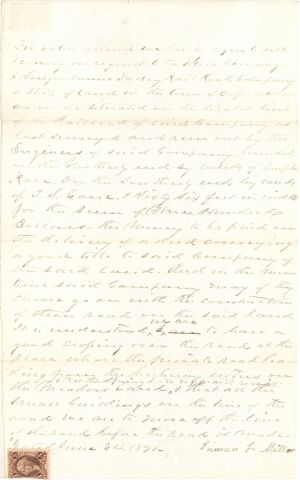 For value received we hereby agree to sell
& convey or
& Susquehanna Valley Rail Road Company
a strip of land in the town of Oxford
situated on the located line
of the Railroad of said Company as
last surveyed and run out by the
Engineer of said Company bounded
on the Northerly end by lands of Joseph
Race. On the Southerly end by lands
of T. S. Case, & Sixty Six feet in width
for the Sum of Three Hundred
Dollars. the Money to be paid on
the delivery of a deed conveying
a good title to said Company of
the said land. And in the mean
time said Company may if they
choose go on with the construction
of their road on the said land
we are
It is understood, to have a
good crossing over the road at the
place where the private road lea-
ding from the highway
the
small buildings on the line of the
road we are to move off the line
of the road before the road is made.
Dated June 24 1870. Truman G. Miller